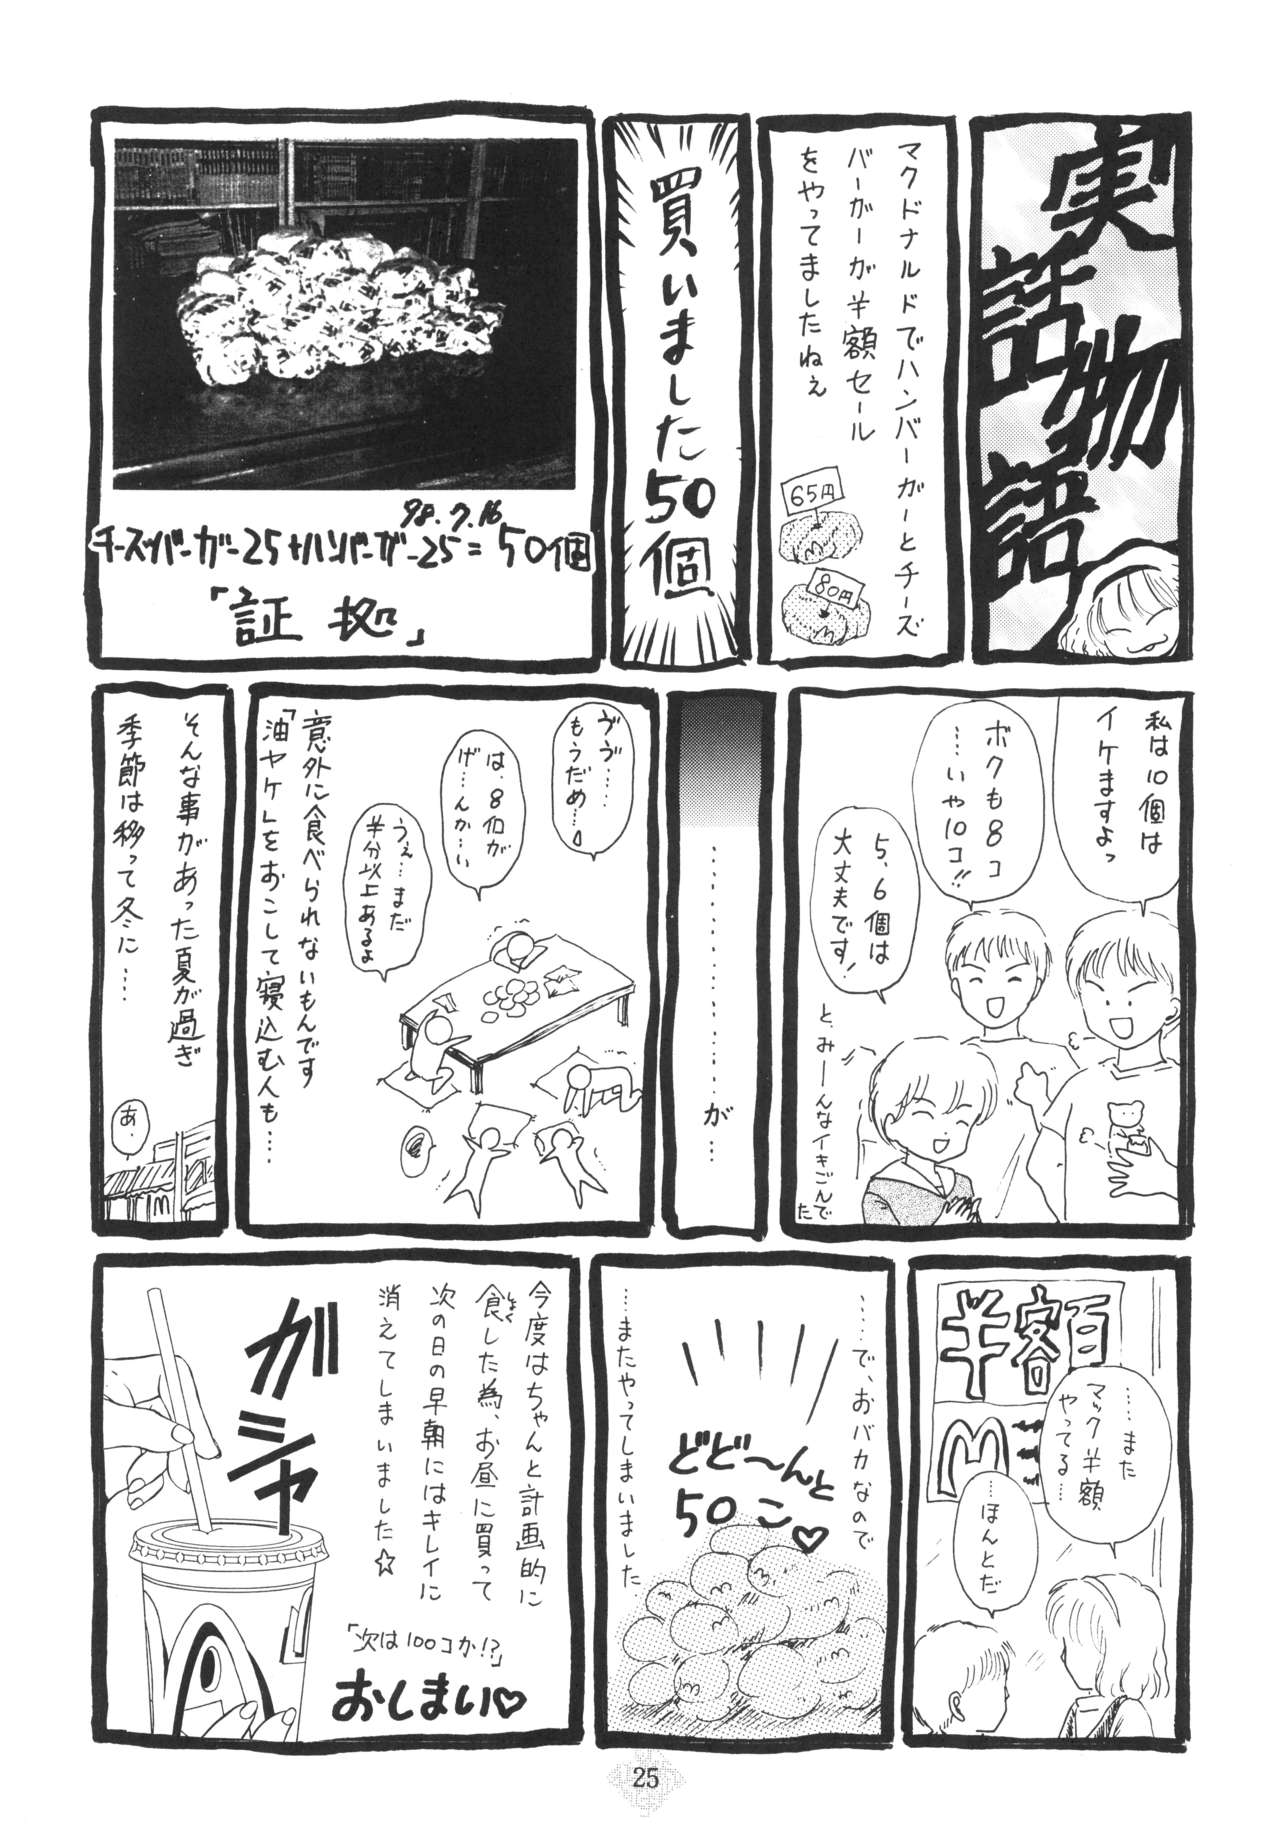 実話物語
マクドナルドでハンバーガーとチーズ
バーガーが半額セール
をやってましたねぇ
65円
80円
買いました50個
98.7.16
チーズバーガー25+ハンバーガー25=50個
「証拠」
私は10個は
イケますよっ
ボクも8コ
……いや10コ!!
5、6個は
大丈夫です!
と、みーんなイキごんで
た
………………が…
ヴヴ……
もうだめ…
は、8個が
げ…んか…い
うぇ…まだ
半分以上あるよ
意外に食べられないもんです
「油ヤケ」をおこして寝込む人も……
そんな事があった夏が過ぎ
季節は移って冬に……
あ.
半額
M
……また
マック半額
やってる…
…ほんとだ
……で、おバカなので
どど〜んと
50こ♡
……またやってしまいました
今度はちゃんと計画的に
食した為、お昼に買って
しょく
次の日の早朝にはキレイに
消えてしまいました☆
ガシャ
「次は100コか!?」
おしまい♡
25